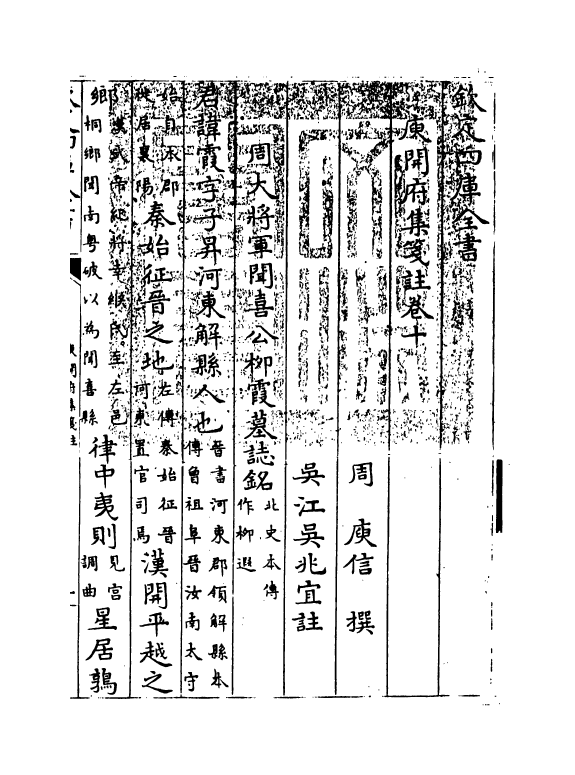 欽定四庫全書
庾開府集箋註卷十
周　庾信　撰
吳江吳兆宜註
周大將軍聞喜公柳霞墓誌銘北史本傳作柳遐
君諱霞字子昇河東解縣人也晉書河東郡領解縣本傳曾祖卓晉汝南太守
始自本郡徙居襄陽秦始征晉之地左傳秦始征晉河東置官司焉漢開平越之
鄉漢武帝紀將幸緱氏至左邑桐鄉聞南粤破以為聞喜縣律中夷則見宫調曲星居鶉
庾開府集箋註